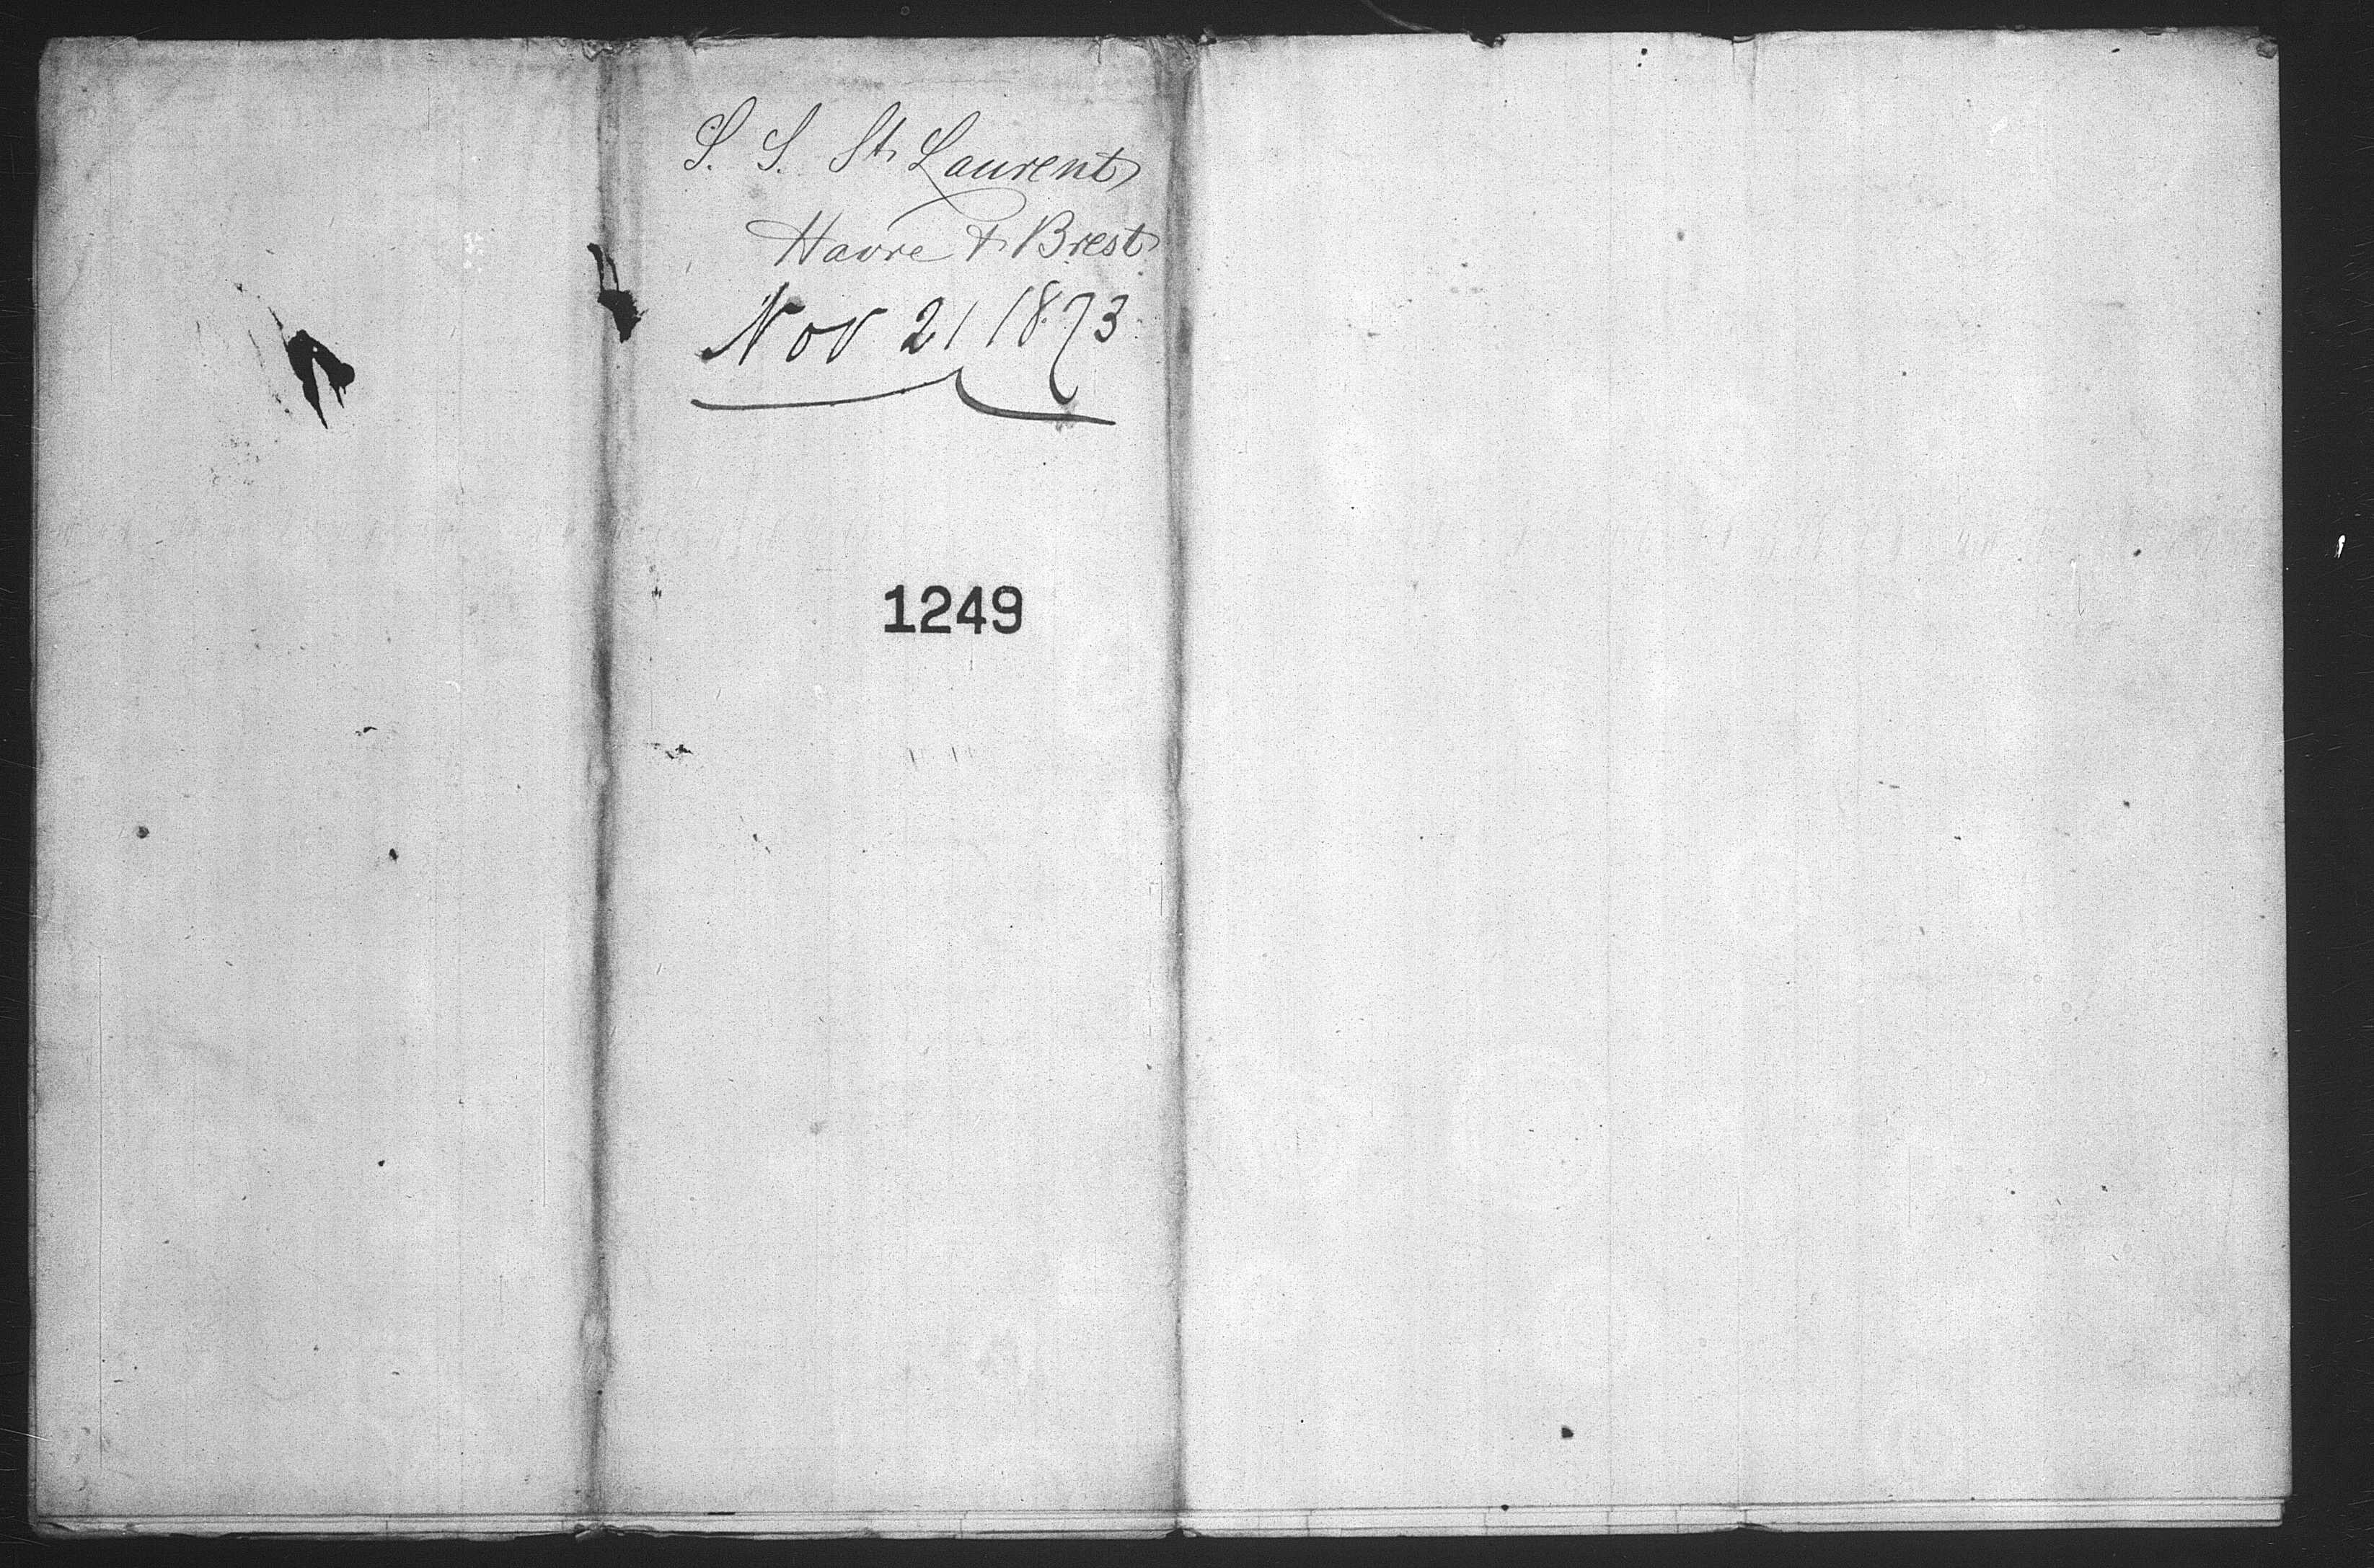 S. S. St. Laurent
Havre & Brest
Nov 21 1873
1249